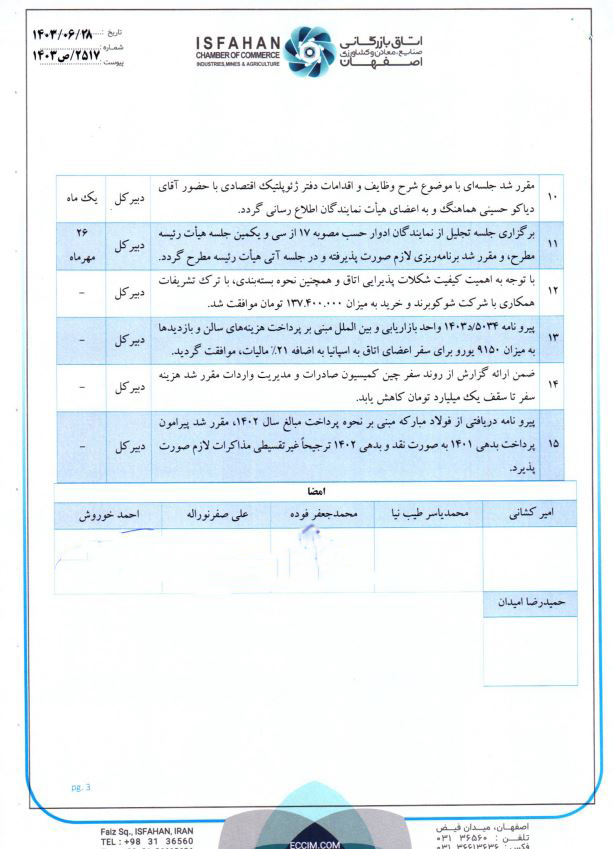 تاریخ : ۱۴۰۳/۰۶/۲۸
شماره : ۲۵۱۷/ص/۱۴۰۳
پیوست :
ISFAHAN
CHAMBER OF COMMERCE
INDUSTRIES, MINES & AGRICULTURE
اتاق بازرگانی
صنایع، معادن و کشاورزی
اصفهان
۱۰ مقرر شد جلسه‌ای با موضوع شرح وظایف و اقدامات دفتر ژئوپلتیک اقتصادی با حضور آقای دبیر کل یک ماه
دیاکو حسینی هماهنگ و به اعضای هیأت نمایندگان اطلاع رسانی گردد.
۱۱ برگزاری جلسه تجلیل از نمایندگان ادوار حسب مصوبه ۱۷ از سی و یکمین جلسه هیأت رئیسه دبیر کل ۲۶
مطرح، و مقرر شد برنامه‌ریزی لازم صورت پذیرفته و در جلسه آتی هیأت رئیسه مطرح گردد. مهرماه
۱۲ با توجه به اهمیت کیفیت شکلات پذیرایی اتاق و همچنین نحوه بسته‌بندی، با ترک تشریفات دبیر کل -
همکاری با شرکت شوکوبرند و خرید به میزان ۱۳۷.۴۰۰.۰۰۰ تومان موافقت شد.
۱۳ پیرو نامه ۵۰۳۴/د/۱۴۰۳ واحد بازاریابی و بین الملل مبنی بر پرداخت هزینه‌های سالن و بازدیدها دبیر کل -
به میزان ۹۱۵۰ یورو برای سفر اعضای اتاق به اسپانیا به اضافه ۲۱٪ مالیات، موافقت گردید.
۱۴ ضمن ارائه گزارش از روند سفر چین کمیسیون صادرات و مدیریت واردات مقرر شد هزینه دبیر کل -
سفر تا سقف یک میلیارد تومان کاهش یابد.
۱۵ پیرو نامه دریافتی از فولاد مبارکه مبنی بر نحوه پرداخت مبالغ سال ۱۴۰۲، مقرر شد پیرامون دبیر کل -
پرداخت بدهی ۱۴۰۱ به صورت نقد و بدهی ۱۴۰۲ ترجیحاً غیرتقسیطی مذاکرات لازم صورت
پذیرد.
امضا
امیر کشانی محمدیاسر طیب نیا محمدجعفر فوده علی صفرنوراله احمد خوروش
حمیدرضا امیدان
pg. 3
Faiz Sq., ISFAHAN, IRAN
TEL : +98 31 36560
ECCIM.COM
اصفهان، میدان فیض
تلفن : ۳۶۵۶۰ ۰۳۱
فکس : ۳۶۶۱۳۶۳۶ ۰۳۱